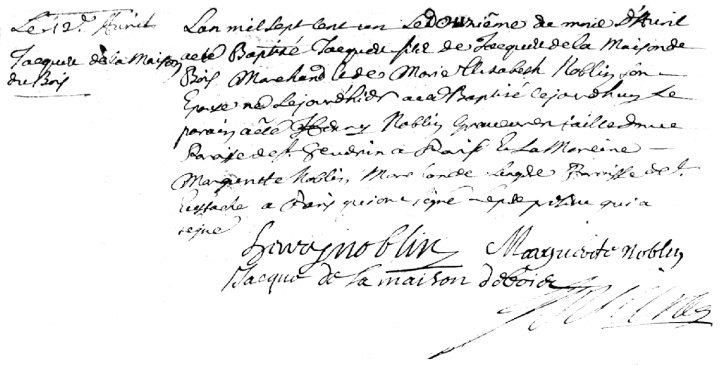 Le 12e Avril
Jacque de la Maison
du Bois
Lan mil sept cent un Le Douziéme du mois D'Avril
a eté Baptisé Jacque fils de Jacque de la Maison de
Bois Marchand et de Marie Elisabeth Noblin Son
Epouse né Le jourdhier a eté Baptisé cejourdhuy Le
parain a eté Henry Noblin Graveur en taille douce
Paroisse de St. à Paris et La Mareine
Marguerite Noblin, Marchande Lingere Parroisse de St.
Eustache a Paris qui ont signé Le pere qui a
signé
Henry noblin Marguerite Noblin
Jacque de la maison de bois